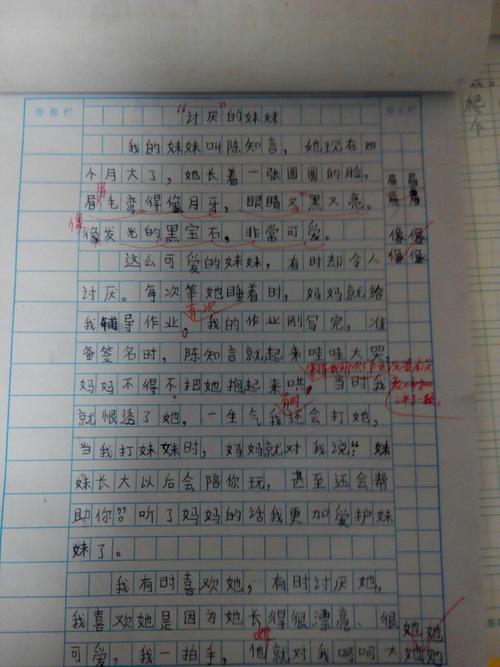 旁批栏
更正栏
“讨厌”的妹妹
我的妹妹叫陈知言，她现在四
个月大了，她长着一张圆圆的脸，
眉毛弯得像月牙，眼睛又黑又亮，
像发光的黑宝石，非常可爱。
这么可爱的妹妹，有时却令人
讨厌。每次等她睡着时，妈妈就给
有一次
我辅导作业。我的作业刚写完，准
备签名时，陈知言就起来哇哇大哭，
妈妈不得不把她抱起来哄，当时我
有时
就恨透了她，一生气我还会打她，
当我打妹妹时，妈妈就对我说：“妹
妹长大以后会陪你玩，甚至还会帮
助你”听了妈妈的话我更加爱护妹
妹了。
我有时喜欢她，有时讨厌她，
我喜欢她是因为她长得很漂亮、很
她
可爱，我一拍手，他就对我呵呵大
眉 眉
眉 眉
像
像 像
像 像
她 她
她 她